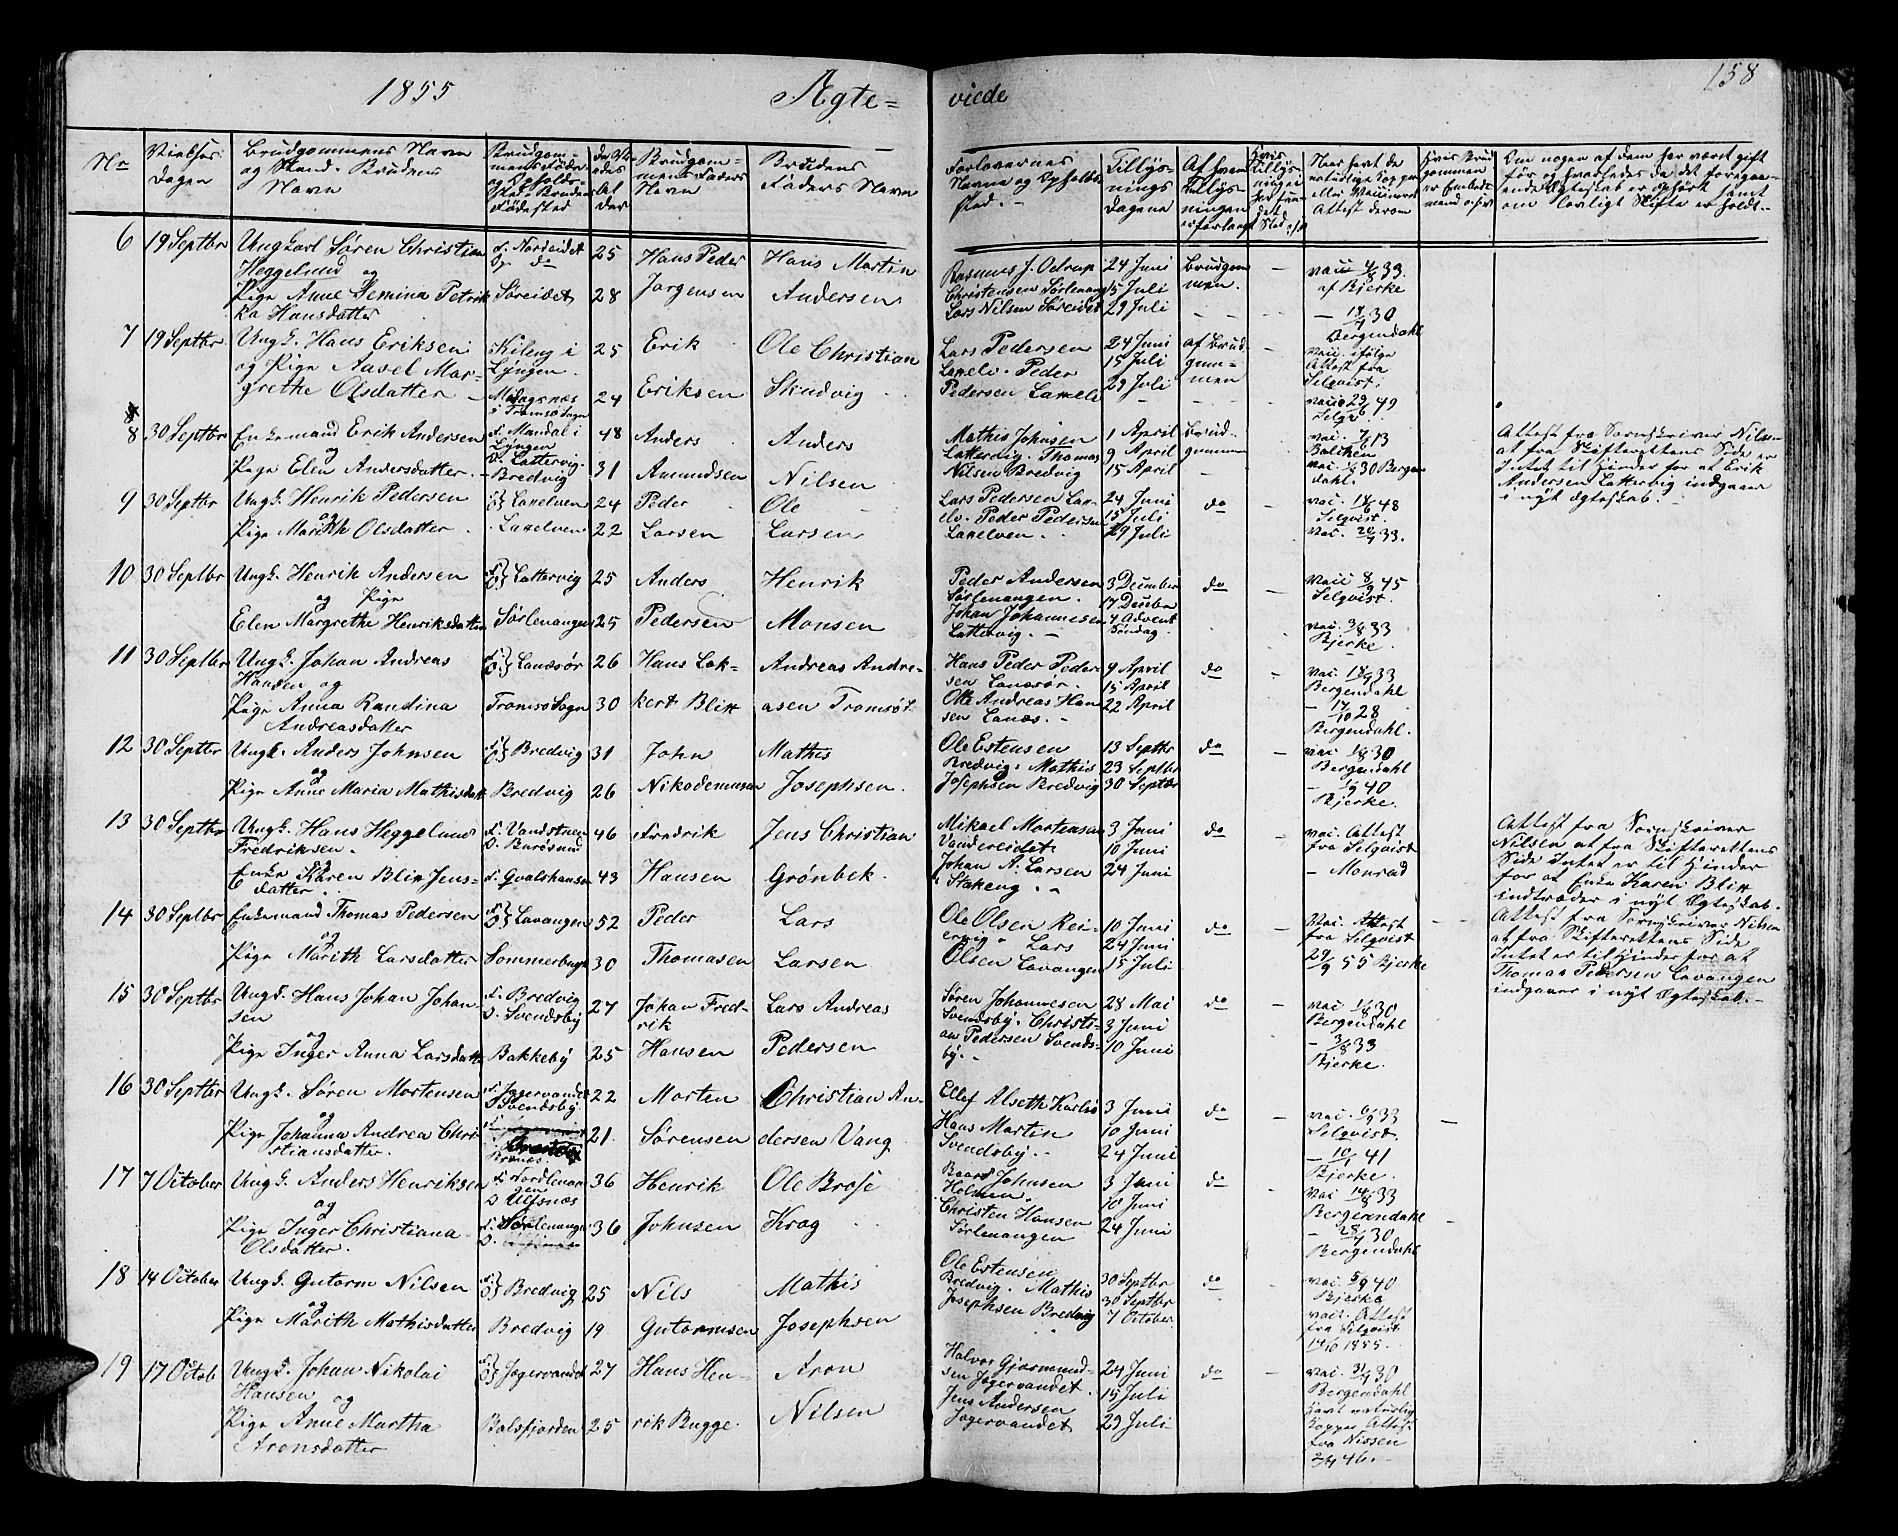 1855 Ægte= viede 158
Nr
Vielses
dagen
Brudgommens Navn
og Stand. Brudens
Navn
Brudgom=
mens Faders
Navn
Brudens
Faders Navn
Forlovernes
Navne og Opholds
sted.
Tillys=
nings
dagene
Af hvem
Tillys=
ningen
er forlangt
Om nogen af dem har været gift
før og hvorledes da det foregaa=
ende Ægteskab er ophørt samt
om lovligt Skifte er holdt.
6 19 Septbr Ungkarl Søren Christian
Heggelund og
Pige Anne Jemina Petrik
ka Hansdatter
f. Nordeidet
Søreidet
25
28
Hans Peder
Jørgensen
Hans Martin
Andersen
Rasmus J. Odrup
Christensen Sørlenang
Lars Nilsen Søreidet
24 Juni
15 Juli
29 Juli
Brudgom
men.
vac. 4/8 33.
af Bjerke
30
Bergendahl
7 19 Septbr Ungk. Hans Eriksen
og Pige Aasel Mar=
grethe Olsdatter
Kileng i
Lyngen.
i Tromsø Sogn
25
24
Erik
Eriksen
Ole Christian
Skudvig
Lars Pedersen
Laxelv. Peder
Pedersen Laxelv
24 Juni
15 Juli
29 Juli
af Brud=
gom=
men
vac. ifølge
Attest fra
Selqvist.
49
8 30 Septbr Enkemand Erik Andersen
og
Pige Elen Andersdatter.
f. Mandal i
Lyngen
O. Lattervig.
Bredvig
48
31
Anders
Aamundsen
Anders
Nilsen
Mathis Johnsen
Lattervig. Thomas
Nilsen Bredvig
1 April
9 April
15 April
Brud=
gommen
vac. 13
30 Bergen
dahl.
Attest fra Sorenskriver Nils=
at fra Skifterettens Side er
Intet til Hinder for at Erik
Andersen Latterbig indgaaer
i nyt Ægteskab.
9 30 Septbr Ungk. Henrik Pedersen
og
Pige Marith Olsdatter
Laxelven
Laxelven
24
22
Peder
Larsen
Ole
Larsen
Lars Pedersen Lax=
elv. Peder Pedersen
Laxelven.
24 Juni
15 Juli
29 Juli
do
vac. 48
Selqvist.
vac. 33.
10 30 Septbr Ungk. Henrik Andersen
og Pige
Elen Margrethe Henriksdatter
Lattervig
Sørlenangen
25
25
Anders
Pedersen
Henrik
Monsen
Peder Andersen
Sørlenangen.
Johan Johannesen
Lattervig.
3 December
17 December
4 Advent
Søndag
do
vac. 8/9 45
Selqvist.
vac. 33
Bjerke
11 30 Septbr Ungk. Johan Andreas
Hansen og
Pige Anna Randina
Andreasdatter
Lanæsør
Tromsø Sogn
26
30
Hans Lok=
kert Blix
Andreas Andre=
asen Tromsø
Hans Peder Peder
sen Lanæsør.
Otto Andreas Han
sen Lanæs.
9 April
15 April
22 April
do
vac. 33
Bergendahl
28
Bergendahl.
12 30 Septbr Ungk. Anders Johnsen
og
Pige Anne Maria Mathisdatt
Bredvig
Bredvig
31
26
John
Nikodemusen
Mathis
Josephsen.
Ole Estensen
Bredvig. Mathis
Josephsen Bredvig
13 Septbr
23 Septbr
30 Septbr
do
vac. 30
Bergendahl
40
Bjerke.
13 30 Septbr Ungk. Hans Heggelund
Fredriksen.
og
Enke Karen Blix Jens=
datter.
46
43
Fredrik
Hansen
Jens Christian
Grønbek.
Mikael Mortensen
Vandereidet.
Johan A. Larsen
Stakeng.
3 Juni
10 Juni
24 Juni
do
vac. Attest
fra Selqvist
Monrad
Attest fra Sorenskriver
Nilsen at fra Skifterettens
Side Intet er til Hinder
for at Enke Karen Blix
indtræder i nyt Ægteskab.
14 30 Septbr Enkemand Thomas Pedersen
og
Pige Marith Larsdatter
Lavangen
Sommerbugt
52
30
Peder
Thomasen
Lars
Larsen
Ole Olsen Rei=
ervig. Lars
Olsen Lavangen
10 Juni
24 Juni
15 Juli
do
vac. Attest
fra Selqvist
29/9 55 Bjerke
Attest fra Sorenskriver Nilsen
at fra Skifterettens Side
Intet er til Hinder for at
Thomas Pedersen Lavangen
indgaaer i nyt Ægteskab.
15 30 Septbr Ungk. Hans Johan Johan
sen
og
Pige Inger Anna Larsdatt
f. Bredvig
O. Svendsby
Bakkeby
27
25
Johan Fred=
rik
Hansen
Lars Andreas
Pedersen
Søren Johannesen
Svendsby. Christi=
an Pedersen Svends=
by.
28 Mai
3 Juni
10 Juni
do
vac. 1/8 30
Bergendahl
3/8 33
Bjerke.
16 30 Septbr Ungk. Søren Mortensen
og
Pige Johanna Andrea Chri
stiansdatter.
f. Jegervandet
Svendsby.
22
21.
Morten
Sørensen
Christian An=
dersen Vang
Ellef Alseth Karlsø
Hans Martin
Svendsby.
3 Juni
10 Juni
24 Juni
do
vac. 6/9 33
Selqvist.
41
Bjerke.
17 7 October Ungk. Anders Henriksen
og
Pige Inger Christiana
Olsdatter.
f. Nordlenan
gen
O Ulfsnæs
f. Sørlenangen
36
36
Henrik
Johnsen
Ole Brose
Krog
Baard Johnsen
Holmen.
Christen Hansen
Sørlenangen
3 Juni
10 Juni
24 Juni
do
vac. 14/8 33
Bergerendahl
30
Bergendahl
18 14 October Ungk. Gutorm Nilsen
og
Pige Marith Mathisdatter
Bredvig
Bredvig
25
19
Nils
Gutormsen
Mathis
Josephsen
Ole Estensen
Bredvig. Mathis
Josephsen Bredvig
30 Septbr
30 Septbr
7 October
do
vac. 5/9 40
Bjerke
vac. Attest
fra Selqvist
14/10 1855.
19 17 Octob Ungk. Johan Nikolai
Hansen og
Pige Anne Martha
Aronsdatter
Jegervandet
Balsfjorden
27
25
Hans Hen=
rik Bugge.
Aron
Nilsen
Halvor Gjermund=
sen Jegervandet.
Jens Andersen
Jegervandet
24 Juni
15 Juli
29 Juli
do
vac. 30
Bergendahl
havt naturlig
Kopper Attest
fra Nissen
46.